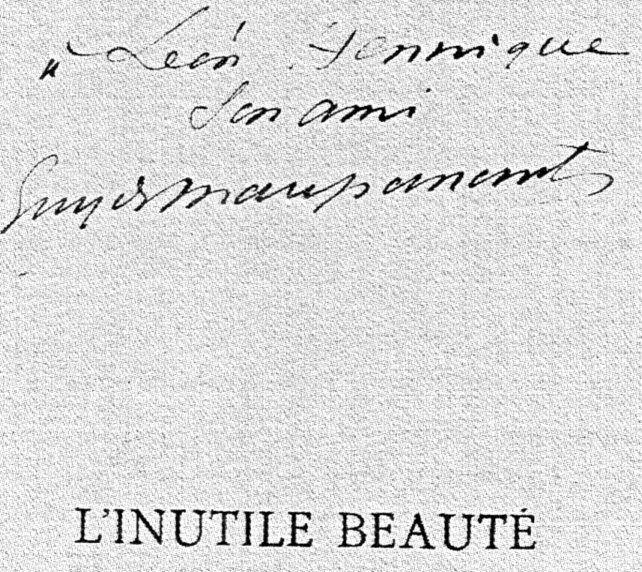 à Léon Hennique
Son ami
Guy de Maupassant
L'INUTILE BEAUTÉ